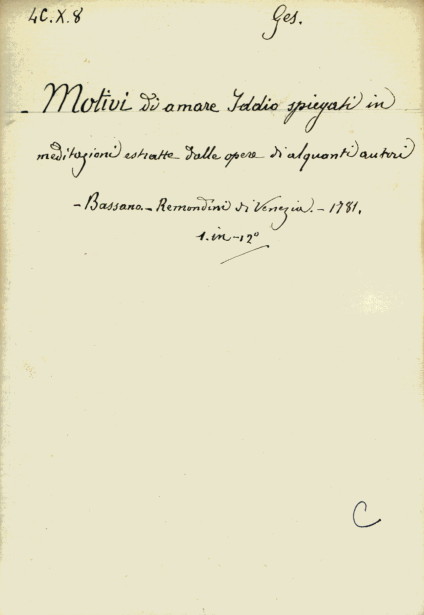 4C.X.8
Ges.
- Motivi di amare Iddio spiegati in
meditazioni estratte dalle opere di alquanti autori
- Bassano. - Remondini di Venezia. - 1781.
1. in - 12º
C